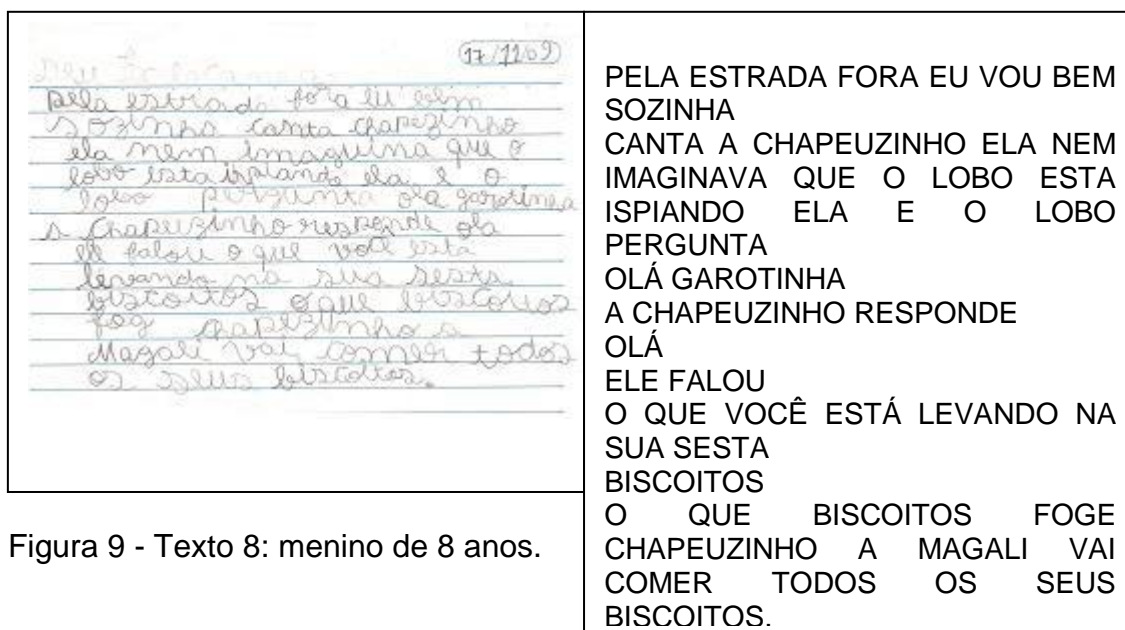 17/11/09
pela estrada fora eu bem
sozinho canta chapezinho
ela nem imaguina que o
lobo esta ispiando ela e o
lobo pergunta ola garotinha
a Chapeuzinho responde ola
ele falou o que você esta
levando na sua sesta
biscoitos o que biscoitos
foge chapezinho a
Magali vai comer todos
os seus biscoitos.
Figura 9 - Texto 8: menino de 8 anos.
PELA ESTRADA FORA EU VOU BEM
SOZINHA
CANTA A CHAPEUZINHO ELA NEM
IMAGINAVA QUE O LOBO ESTA
ISPIANDO ELA E O LOBO
PERGUNTA
OLÁ GAROTINHA
A CHAPEUZINHO RESPONDE
OLÁ
ELE FALOU
O QUE VOCÊ ESTÁ LEVANDO NA
SUA SESTA
BISCOITOS
O QUE BISCOITOS FOGE
CHAPEUZINHO A MAGALI VAI
COMER TODOS OS SEUS
BISCOITOS.